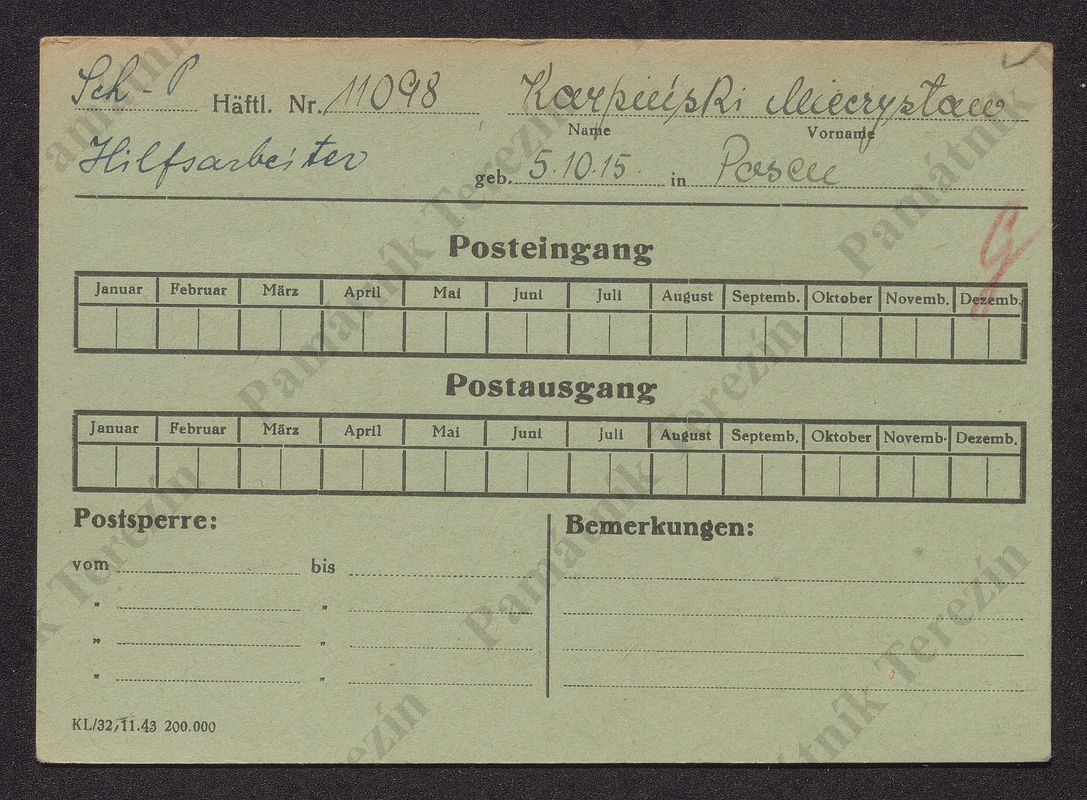 Sch - P Häftl. Nr. 11098 Karpiński Mieczysław
Name Vorname
Hilfsarbeiter geb. 5.10.15. in Posen
Posteingang
Januar Februar März April Mai Juni Juli August Septemb. Oktober Novemb. Dezemb.
Postausgang
Januar Februar März April Mai Juni Juli August Septemb. Oktober Novemb. Dezemb.
Postsperre: Bemerkungen:
vom bis
" "
" "
" "
KL/32, 11.43 200.000
Památník Terezín